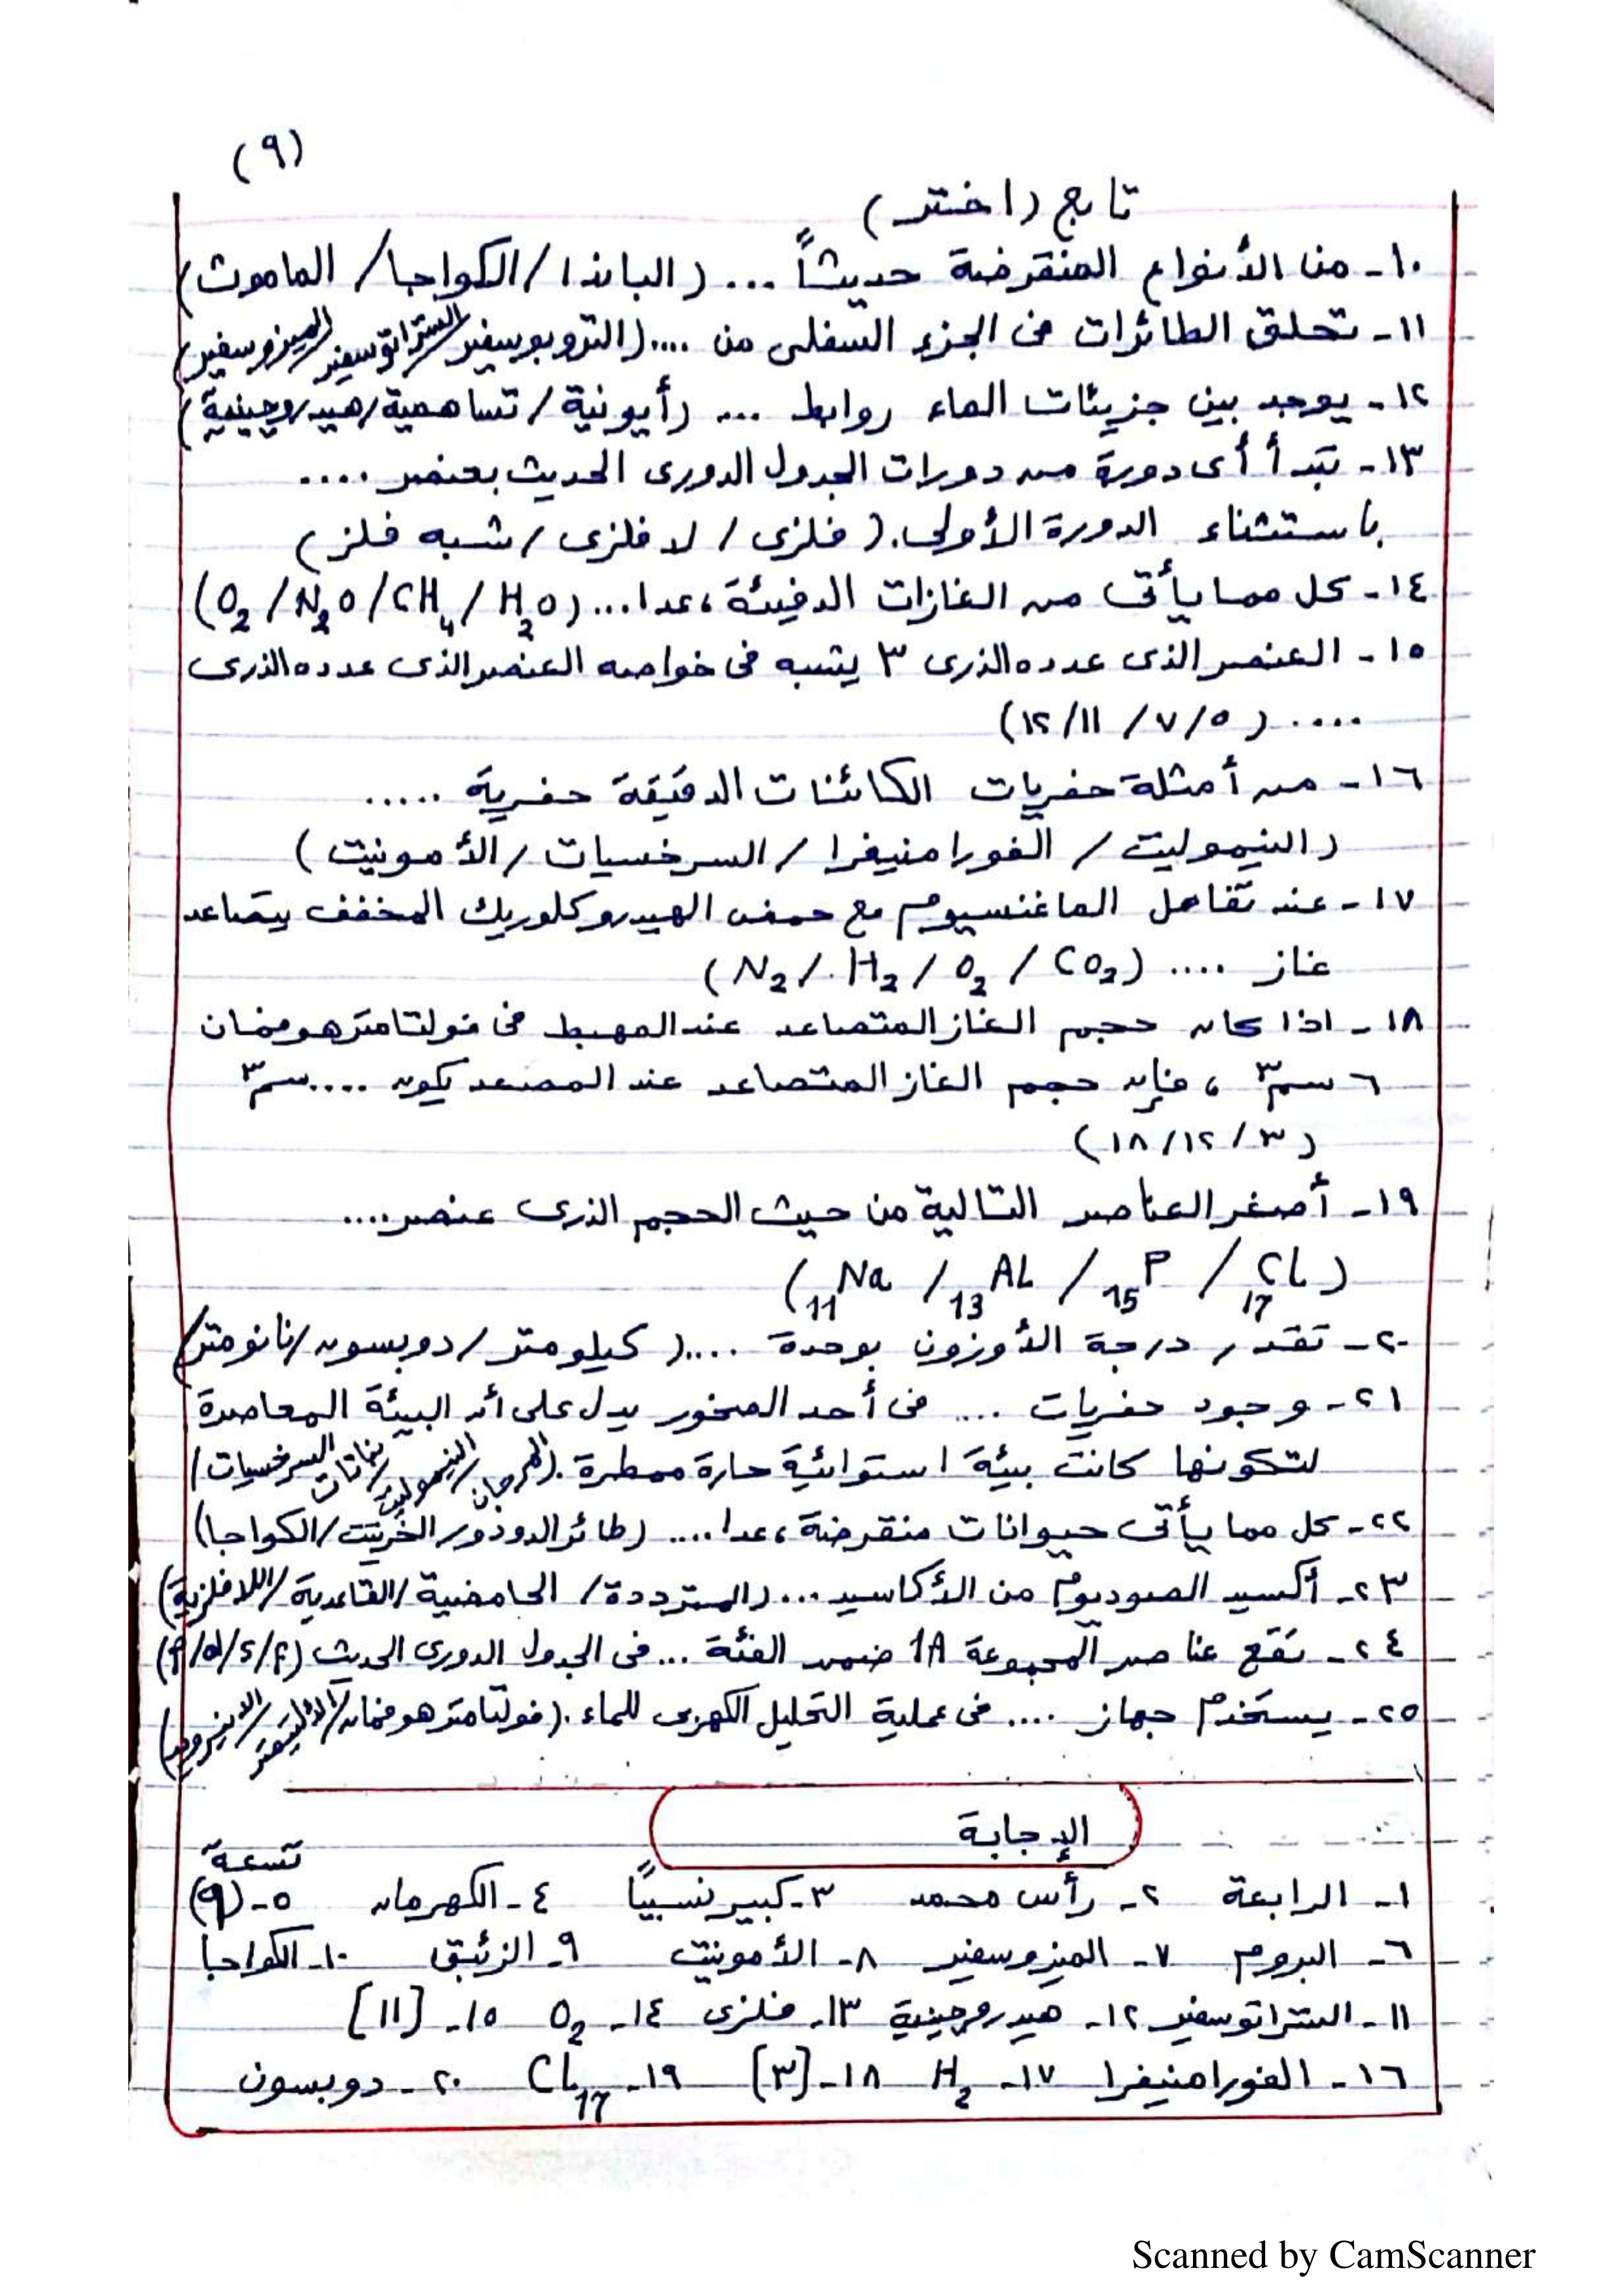 (٩)
تابع (اختر)
١٠- من الأنواع المنقرضة حديثاً ... (الباندا/الكواجا/الماموث)
١١- تحلق الطائرات فى الجزء السفلى من .... (التروبوسفير/الستراتوسفير/الميزوسفير)
١٢- يوجد بين جزيئات الماء روابط ... (أيونية/تساهمية/هيدروجينية)
١٣- تبدأ أى دورة من دورات الجدول الدورى الحديث بعنصر ....
باستثناء الدورة الأولى. (فلزى/لافلزى/شبه فلز)
١٤- كل مما يأتى من الغازات الدفيئة، عدا... (O₂/N₂O/CH₄/H₂O)
١٥- العنصر الذى عدده الذرى ٣ يشبه فى خواصه العنصر الذى عدده الذرى
.... (٥/٧/١١/١٢)
١٦- من أمثلة حفريات الكائنات الدقيقة حفرية .....
(النيموليت/الفورامنيفرا/السرخسيات/الأمونيت)
١٧- عند تفاعل الماغنسيوم مع حمض الهيدروكلوريك المخفف يتصاعد
غاز .... (N₂/H₂/O₂/CO₂)
١٨- اذا كان حجم الغاز المتصاعد عند المهبط فى فولتامتر هوفمان
٦ سم٣ ، فإن حجم الغاز المتصاعد عند المصعد يكون ....سم٣
(٣/١٢/١٨)
١٩- أصغر العناصر التالية من حيث الحجم الذرى عنصر....
(₁₁Na / ₁₃AL / ₁₅P / ₁₇CL)
٢٠- تقدر درجة الأوزون بوحدة ....(كيلومتر/دوبسون/نانومتر)
٢١- وجود حفريات .... فى أحد الصخور يدل على أن البيئة المعاصرة
لتكونها كانت بيئة استوائية حارة ممطرة. (المرجان/النيموليت/نباتات السرخسيات)
٢٢- كل مما يأتى حيوانات منقرضة، عدا.... (طائر الدودو/الخرتيت/الكواجا)
٢٣- أكسيد الصوديوم من الأكاسيد ... (المترددة/الحامضية/القاعدية/اللافلزية)
٢٤- تقع عناصر المجموعة 1A ضمن الفئة ...فى الجدول الدورى الحديث (f/s/d/p)
٢٥- يستخدم جهاز .... فى عملية التحليل الكهربى للماء. (فولتامتر هوفمان/الألتيمتر/الانيرويد)
الإجابة
١- الرابعة ٢- رأس محمد ٣- كبير نسبيًا ٤- الكهرمان ٥- (٩) تسعة
٦- البروم ٧- الميزوسفير ٨- الأمونيت ٩- الزئبق ١٠- الكواجا
١١- الستراتوسفير ١٢- هيدروجينية ١٣- فلزى ١٤- O₂ ١٥- [١١]
١٦- الفورامنيفرا ١٧- H₂ ١٨- [٣] ١٩- CL₁₇ ٢٠- دوبسون
Scanned by CamScanner